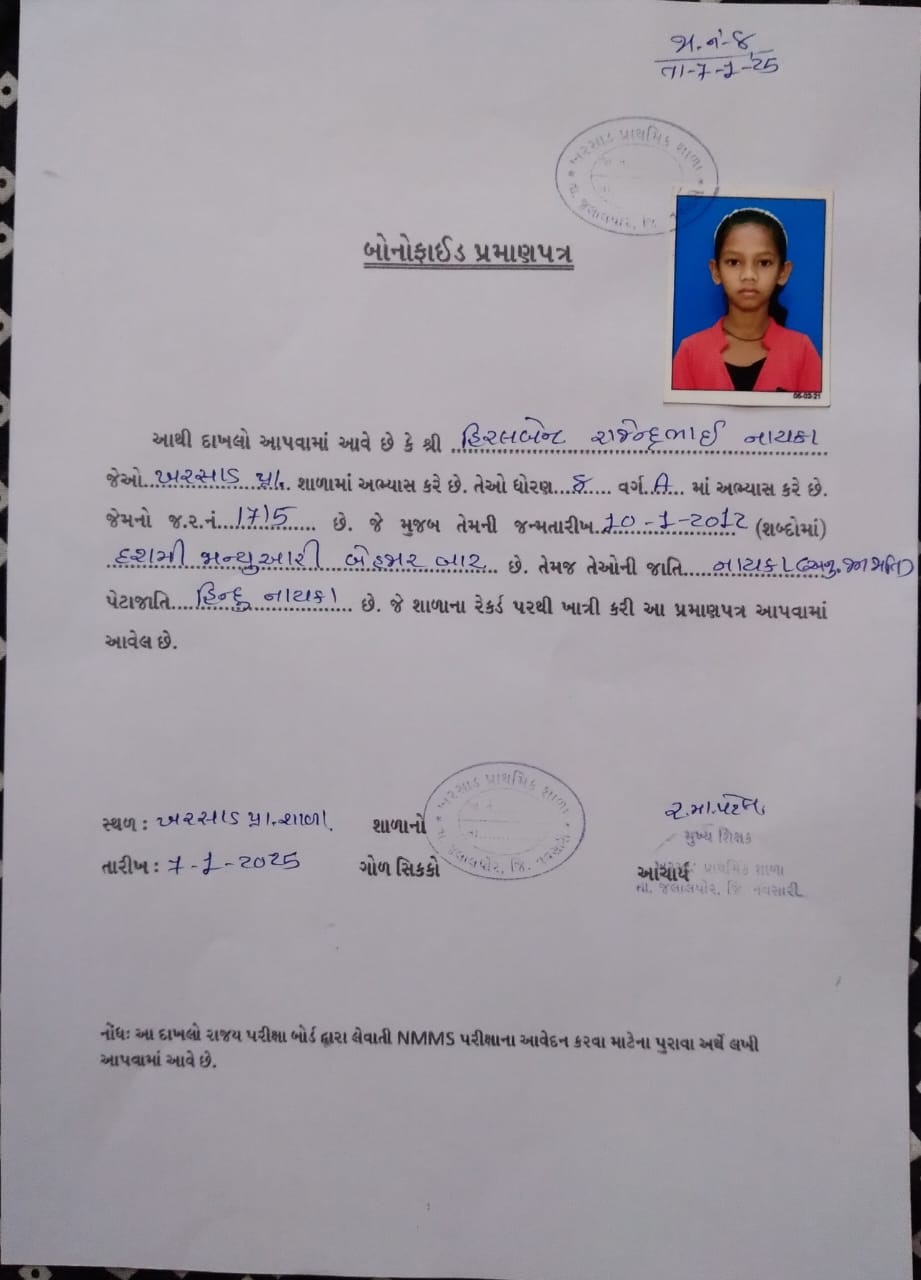 જા.નં-૪
તા-7-1-25
ખરસાડ પ્રાથમિક શાળા
તા. જલાલપોર, જિ.
બોનોફાઈડ પ્રમાણપત્ર
05-03-21
આથી દાખલો આપવામાં આવે છે કે શ્રી હિરલબેન રાજેન્દ્રભાઈ નાયકા
જેઓ ખરસાડ પ્રા. શાળામાં અભ્યાસ કરે છે. તેઓ ધોરણ 8 વર્ગ A માં અભ્યાસ કરે છે.
જેમનો જ.ર.નં. 1715 છે. જે મુજબ તેમની જન્મતારીખ 10-1-2012 (શબ્દોમાં)
દશમી જાન્યુઆરી બેહજાર બાર છે. તેમજ તેઓની જાતિ નાયકા (અનુ.જન જાતિ)
પેટાજાતિ હિન્દુ નાયકા છે. જે શાળાના રેકર્ડ પરથી ખાત્રી કરી આ પ્રમાણપત્ર આપવામાં
આવેલ છે.
સ્થળ : ખરસાડ પ્રા.શાળા. શાળાનો
તારીખ : 7-1-2025 ગોળ સિક્કો
ખરસાડ પ્રાથમિક શાળા
તા. જલાલપોર, જિ. નવસારી
ર.મા.પટેલ
મુખ્ય શિક્ષક
આચાર્ય પ્રાથમિક શાળા
તા. જલાલપોર, જિ નવસારી
નોંધઃ આ દાખલો રાજય પરીક્ષા બોર્ડ દ્વારા લેવાતી NMMS પરીક્ષાના આવેદન કરવા માટેના પુરાવા અર્થે લખી
આપવામાં આવે છે.